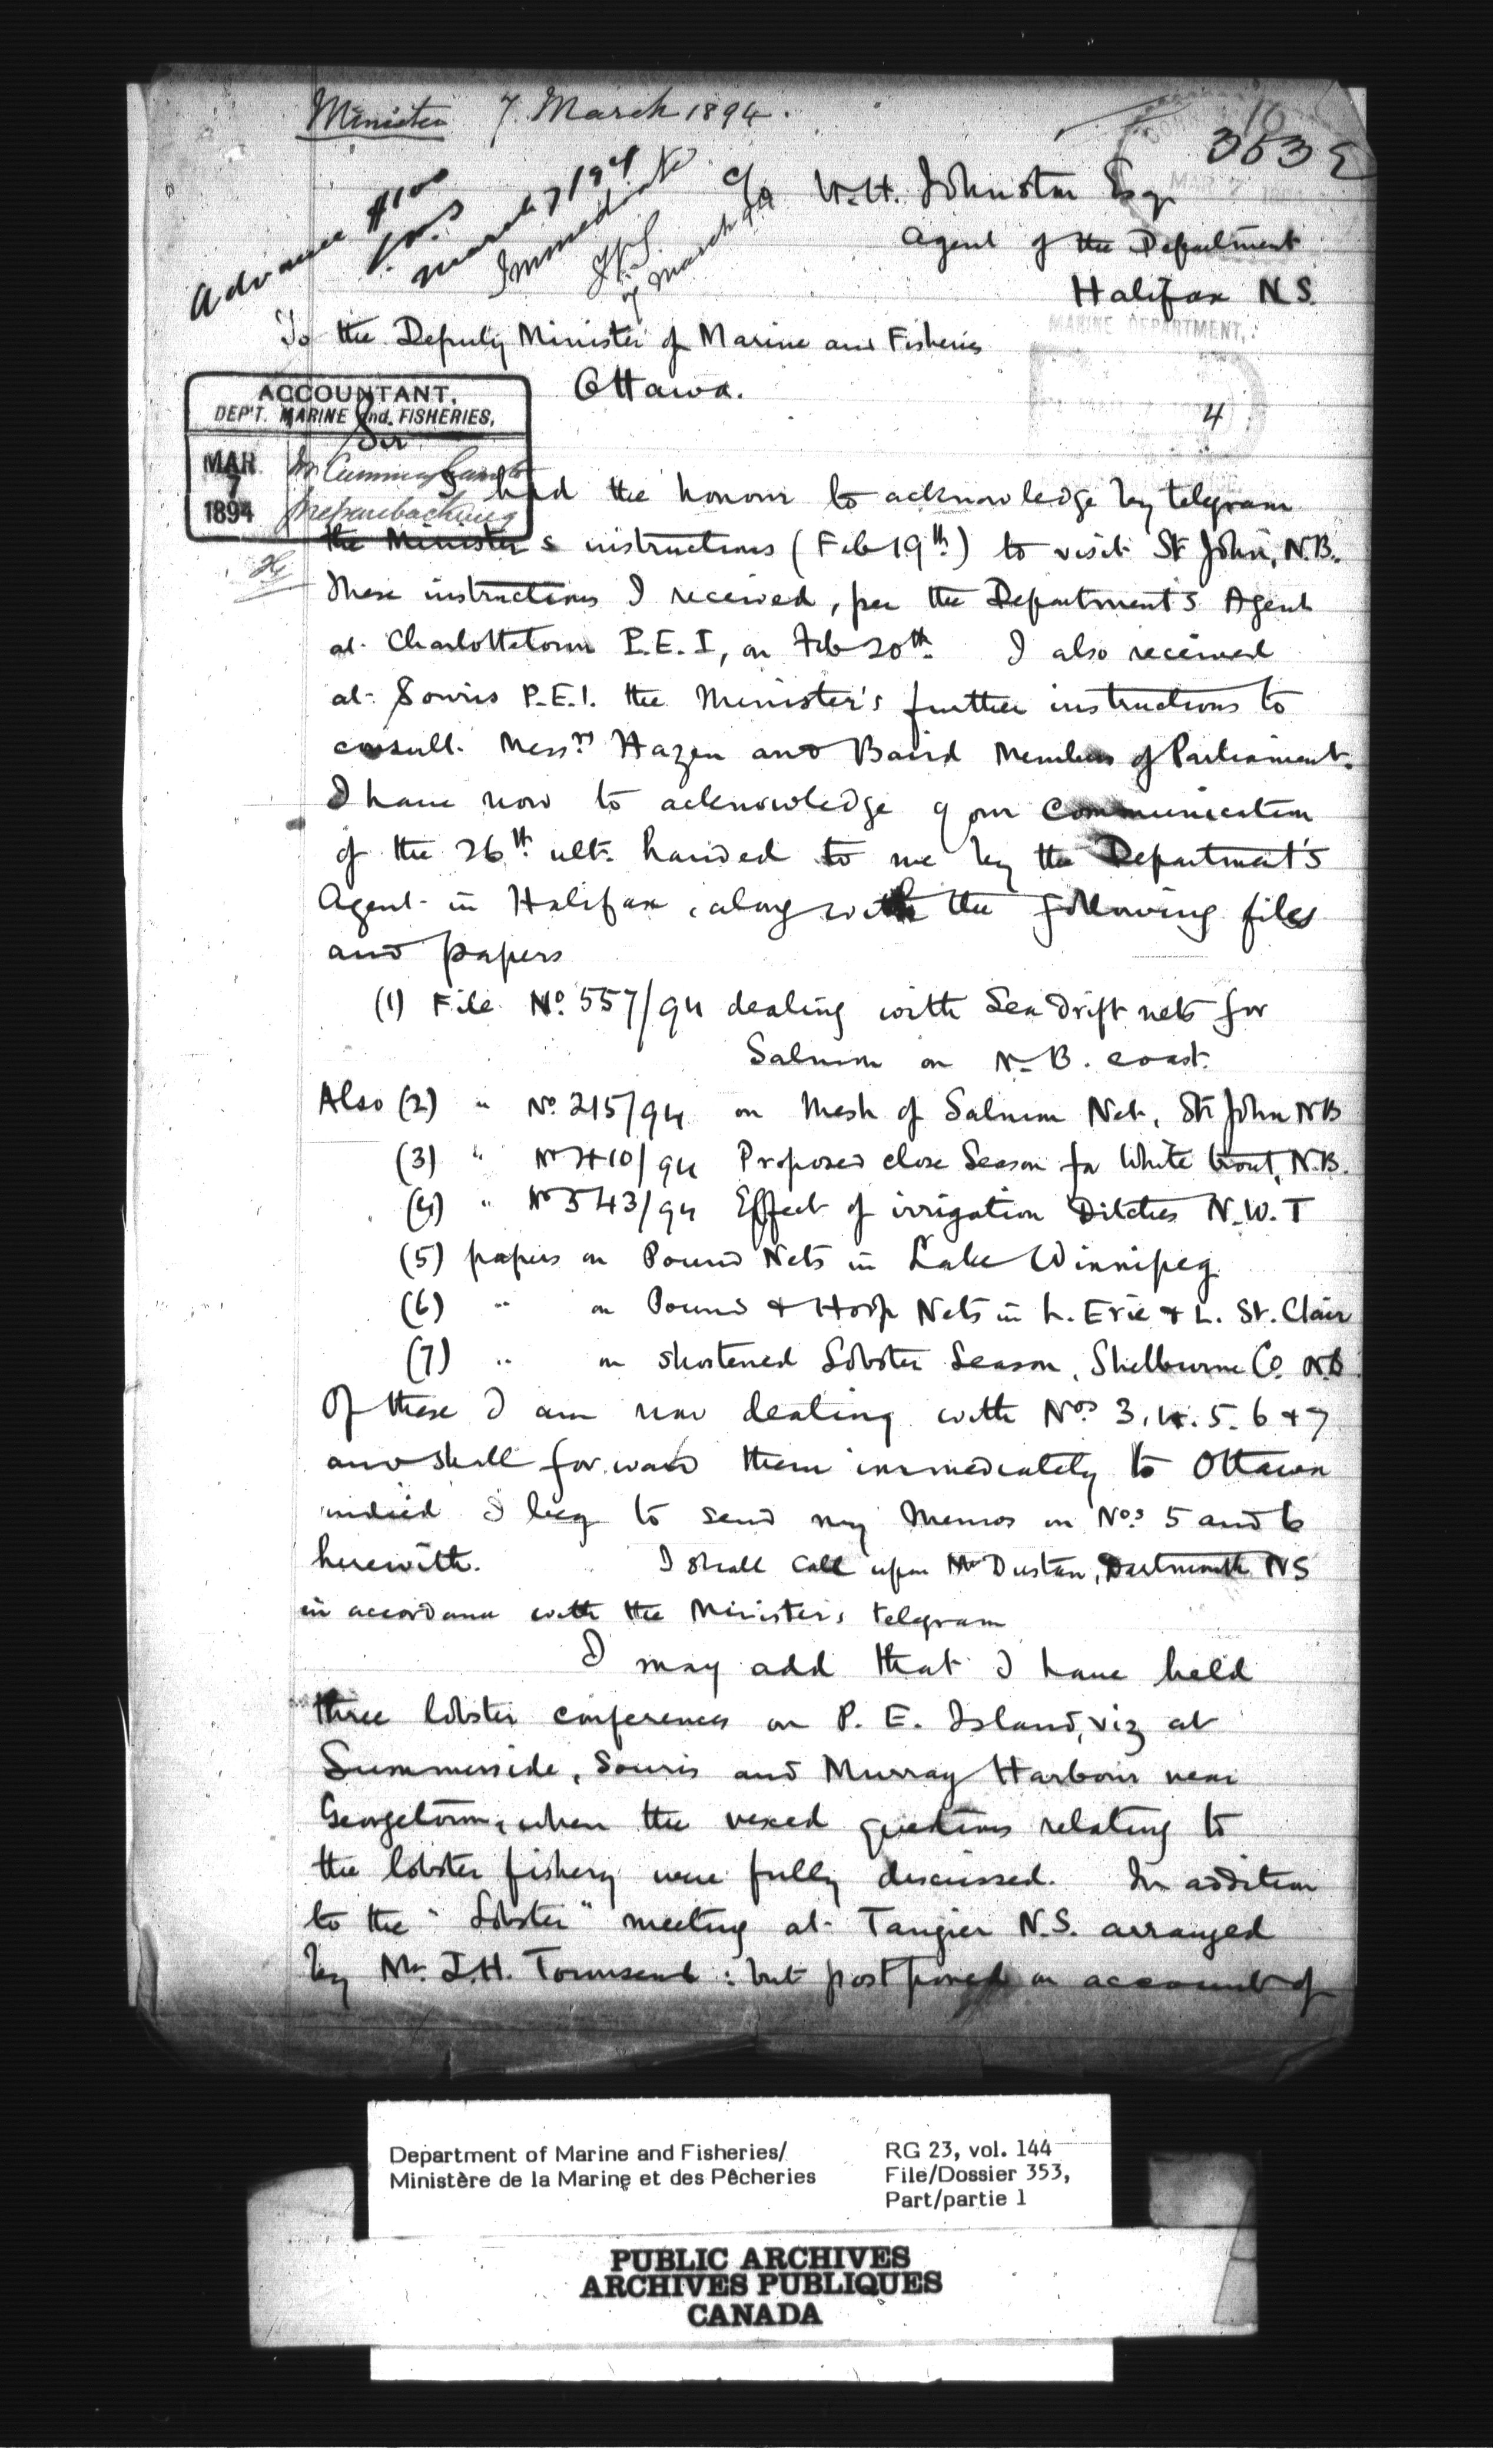 Minister 7 March 1894.
16
353 E
Advance $100
March 7/94
Immediate
7 March 94
MAR 7
c/o W.H. Johnston Esq
Agent of the Department
Halifax N.S.
MARINE DEPARTMENT,
To the Deputy Minister of Marine and Fisheries
Ottawa.
4
ACCOUNTANT,
DEP'T. MARINE and FISHERIES,
MAR
7
1894
Sir
I had the honour to acknowledge by telegram
the Minister's instructions (Feb 19th) to visit St John, N.B.
These instructions I received, per the Department's Agent
at Charlottetown P.E.I, on Feb 20th. I also received
at Souris P.E.I. the Minister's further instructions to
consult Messrs Hazen and Baird Members of Parliament.
I have now to acknowledge your communication
of the 26th ult. handed to me by the Department's
Agent in Halifax, along with the following files
and papers
(1) File No. 557/94 dealing with Sea Drift nets for
Salmon on N.B. coast.
Also (2) " No. 215/94 on Mesh of Salmon Net, St John NB
(3) " No 410/94 Proposed close Season for White trout, N.B.
(4) " No 343/94 Effect of irrigation Ditches N.W.T
(5) papers on Pound Nets in Lake Winnipeg
(6) " on Pound & Hoop Nets in L. Erie & L. St. Clair
(7) " on shortened Lobster Season, Shelburne Co.
Of these I am now dealing with Nos 3, 4. 5. 6 & 7
and shall forward them immediately to Ottawa
indeed I beg to send my Memos on Nos 5 and 6
herewith. I shall call upon Mr Dustan, Dartmouth NS
in accordance with the Minister's telegram
I may add that I have held
three lobster conferences on P. E. Island, viz at
Summerside, Souris and Murray Harbour near
Georgetown, when the vexed questions relating to
the lobster fishery were fully discussed. In addition
to the "Lobster" meeting at Tangier N.S. arranged
by Mr. J.H. Townsend: but postponed on account of
Department of Marine and Fisheries/
Ministère de la Marine et des Pêcheries
RG 23, vol. 144
File/Dossier 353,
Part/partie 1
PUBLIC ARCHIVES
ARCHIVES PUBLIQUES
CANADA